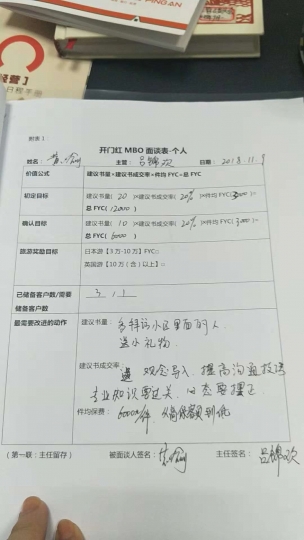 PINGAN
经营】
日程手册
附表 1
开门红 MBO 面谈表-个人
姓名： 主管：吕锦欢 日期：2018.11.9
价值公式 建议书量×建议书成交率×件均 FYC=总 FYC
初定目标 建议书量( 20 )×建议书成交率(20%)×件均 FYC(3000)=
总 FYC(12000)
确认目标 建议书量( 10 )×建议书成交率(20%)×件均 FYC(3000)=
总 FYC(6000)
旅游奖励目标 日本游【3 万-10 万】FYC□
英国游【10 万（含）以上】□
已储备客户数/需要 3 / 1
储备客户数
最需要改进的动作 建议书量：多拜访小区里面的人.
送小礼物.
建议书成交率： 观念导入、提高沟通技巧
专业知识要过关、心态要摆正
件均保费：6000/件
（第一联：主任留存） 被面谈人签名： 主任签名：吕锦欢